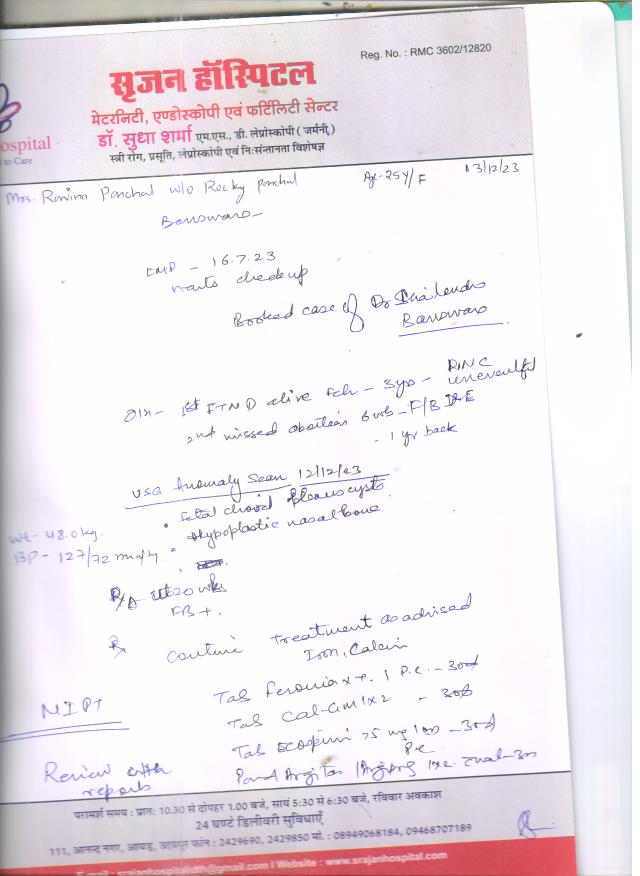 Reg. No. : RMC 3602/12820
सृजन हॉस्पिटल
मेटरनिटी, एण्डोस्कोपी एवं फर्टिलिटी सेन्टर
डॉ. सुधा शर्मा एम.एस., डी. लेप्रोस्कोपी ( जर्मनी )
स्त्री रोग, प्रसूति, लेप्रोस्कोपी एवं निःसंतानता विशेषज्ञ
ospital
to Care
Mrs. Ravina Panchal w/o Rocky Panchal Age-25Y/F 13/12/23
Banswara
LMP - 16.7.23
wants checkup
Booked case of Dr Shailendra
Banswara
O/H- 1st FTND alive Fch - 3yr - PNC uneventful
2nd missed abortion 6 wk - F/B D&E
- 1 yr back
USG Anomaly Scan 12/12/23
• Fetal choroid plexus cysts
• Hypoplastic nasal bone
Wt - 48.0 kg.
BP - 127/72 mmHg
P/A 20 wks
FB +.
Rx Continue treatment as advised
Iron, Calcium
Tab Feronia XT 1 P.C. - 30d
NIPT
Tab Cal-aim 1x2 - 30d
Tab Ecosprin 75 mg 1 OD - 30d
P.C
Review with
reports
परामर्श समय : प्रातः 10.30 से दोपहर 1.00 बजे, सायं 5:30 से 6:30 बजे, रविवार अवकाश
24 घण्टे डिलीवरी सुविधाएँ
111, आनन्द नगर, आयड़, उदयपुर फोन : 2429690, 2429850 मो. : 08949068184, 09468707189
@gmail.com I Website : www.srajanhospital.com